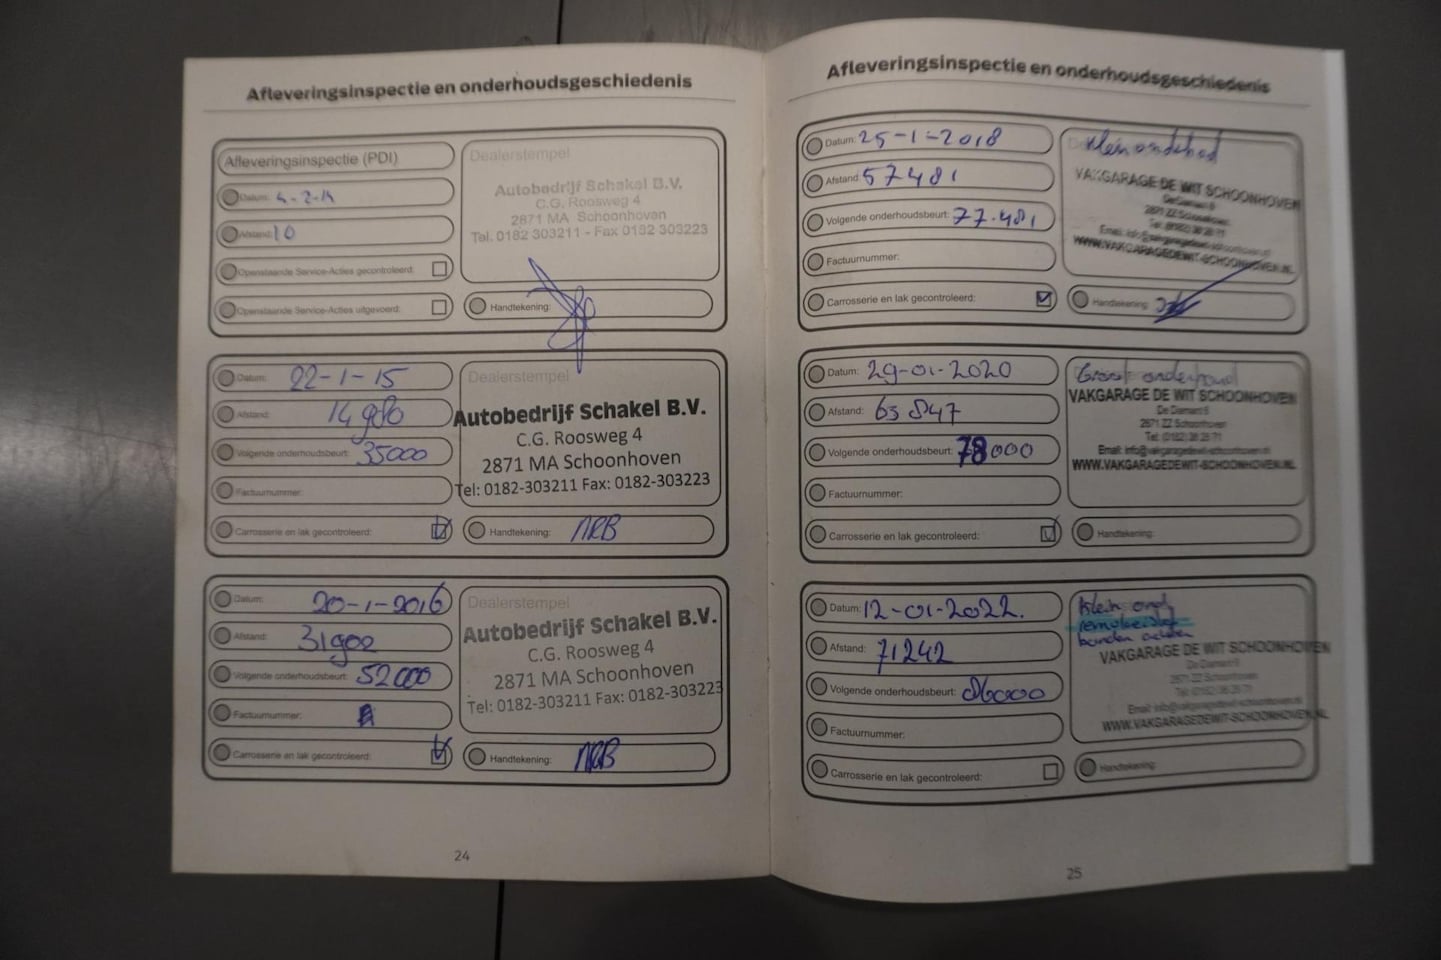 Afleveringsinspectie en onderhoudsgeschiedenis
Afleveringsinspectie (PDI)
Datum: 4-2-14
Afstand: 10
Openstaande Service-Acties gecontroleerd:
Openstaande Service-Acties uitgevoerd:
Dealerstempel
Autobedrijf Schakel B.V.
C.G. Roosweg 4
2871 MA Schoonhoven
Tel. 0182 303211 - Fax 0182 303223
Handtekening:
Datum: 22-1-15
Afstand: 14980
Volgende onderhoudsbeurt: 35000
Factuurnummer:
Carrosserie en lak gecontroleerd:
Dealerstempel
Autobedrijf Schakel B.V.
C.G. Roosweg 4
2871 MA Schoonhoven
Tel: 0182-303211 Fax: 0182-303223
Handtekening:
Datum: 20-1-2016
Afstand: 31900
Volgende onderhoudsbeurt: 52000
Factuurnummer:
Carrosserie en lak gecontroleerd:
Dealerstempel
Autobedrijf Schakel B.V.
C.G. Roosweg 4
2871 MA Schoonhoven
Tel: 0182-303211 Fax: 0182-303223
Handtekening:
24
Afleveringsinspectie en onderhoudsgeschiedenis
Datum: 25-1-2018
Afstand: 57481
Volgende onderhoudsbeurt: 77.481
Factuurnummer:
Carrosserie en lak gecontroleerd:
VAKGARAGE DE WIT SCHOONHOVEN
De Diamant 5
2871 ZZ Schoonhoven
WWW.VAKGARAGEDEWIT-SCHOONHOVEN.NL
Handtekening:
Datum: 29-01-2020
Afstand: 63847
Volgende onderhoudsbeurt: 78000
Factuurnummer:
Carrosserie en lak gecontroleerd:
Groot onderhoud
VAKGARAGE DE WIT SCHOONHOVEN
2871 ZZ Schoonhoven
Tel: (0182) 38 28 71
Email: info@vakgaragedewit-schoonhoven.nl
WWW.VAKGARAGEDEWIT-SCHOONHOVEN.NL
Handtekening:
Datum: 12-01-2022.
Afstand: 71242
Volgende onderhoudsbeurt: 86000
Factuurnummer:
Carrosserie en lak gecontroleerd:
Klein ond
VAKGARAGE DE WIT SCHOONHOVEN
2871 ZZ Schoonhoven
WWW.VAKGARAGEDEWIT-SCHOONHOVEN.NL
Handtekening:
25